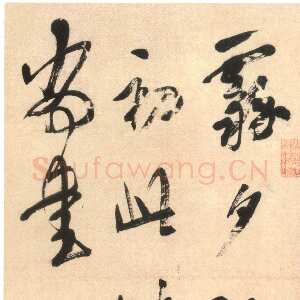 霧夕
初此
尚書
Shufawang.CN